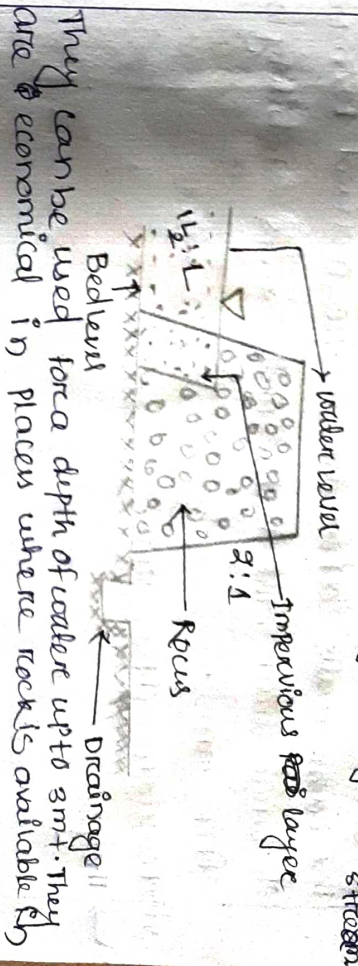 stream
water level
Impervious layer
1½:1
2:1
Rocks
Bed level
Drainage
They can be used for a depth of water upto 3mt. They
are economical in places where rock is available in